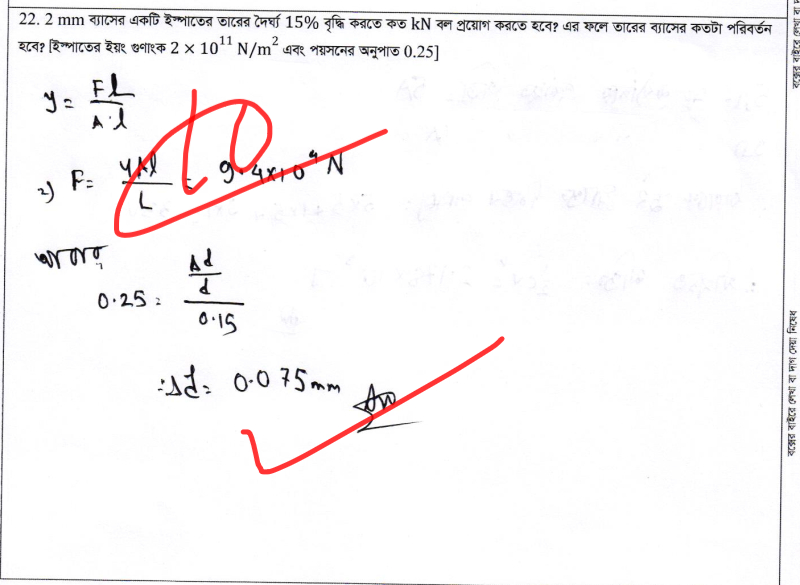 22. 2 mm ব্যাসের একটি ইস্পাতের তারের দৈর্ঘ্য 15% বৃদ্ধি করতে কত kN বল প্রয়োগ করতে হবে? এর ফলে তারের ব্যাসের কতটা পরিবর্তন
হবে? [ইস্পাতের ইয়ং গুণাংক 2 × 10¹¹ N/m² এবং পয়সনের অনুপাত 0.25]
y = FL / A·l
⇒ F = YAl / L = 9.4×10⁴ N
10
আবার,
0.25 = (Δd / d) / 0.15
∴ Δd = 0.075 mm Ans
বক্সের বাইরে লেখা বা দাগ দেয়া নিষেধ